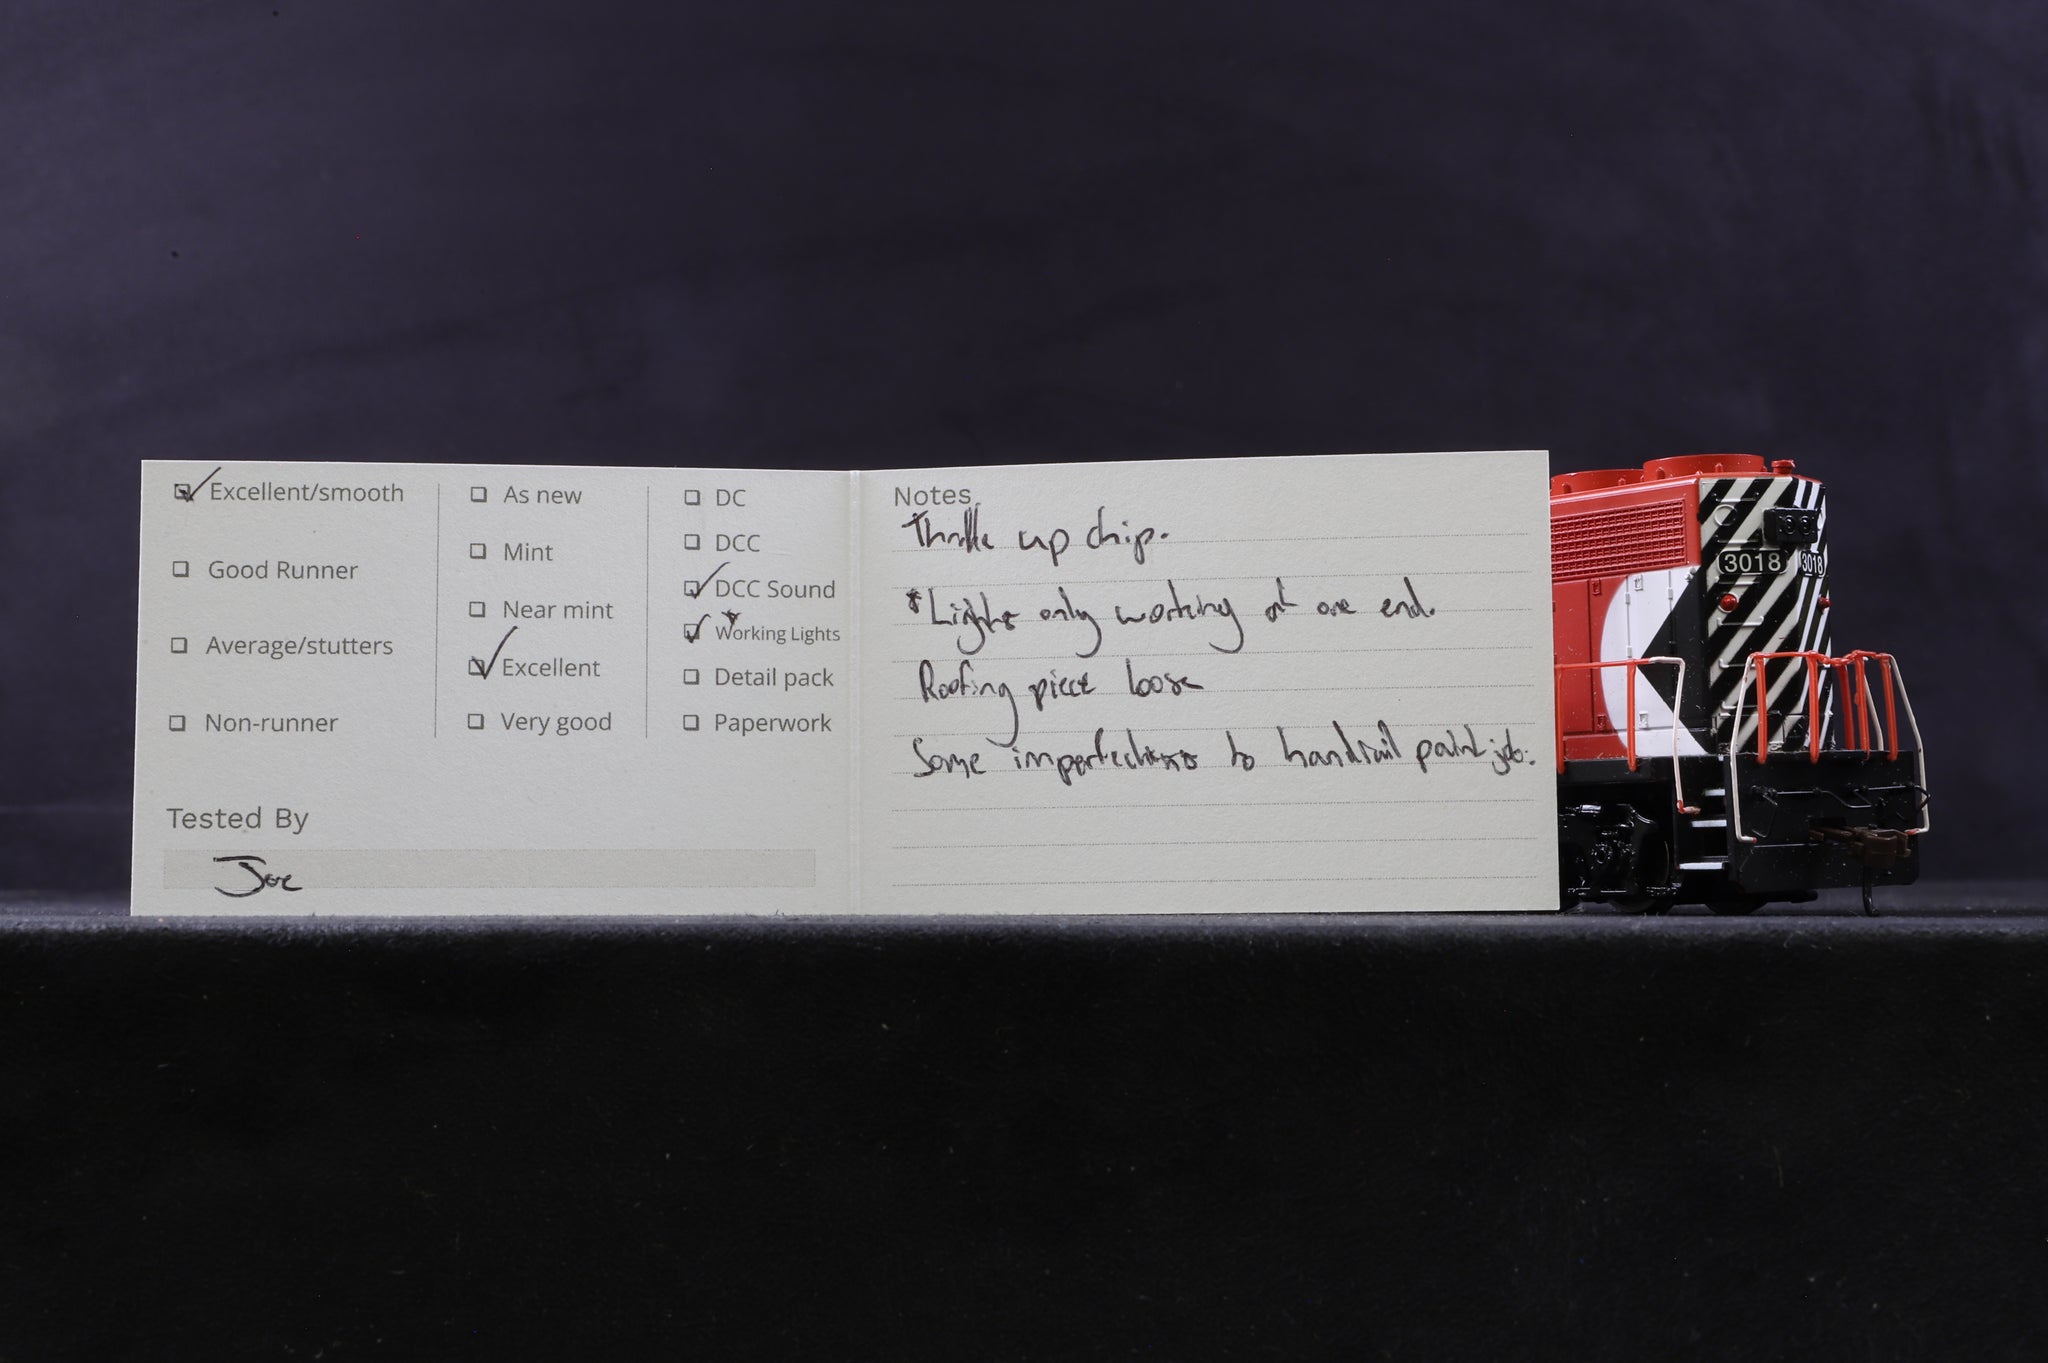 Excellent/smooth
Good Runner
Average/stutters
Non-runner
As new
Mint
Near mint
Excellent
Very good
DC
DCC
DCC Sound
*Working Lights
Detail pack
Paperwork
Tested By
Joe
Notes
Throttle up chip.
*Lights only working at one end.
Roofing piece loose
Some imperfections to handrail paint job.
3018
3018